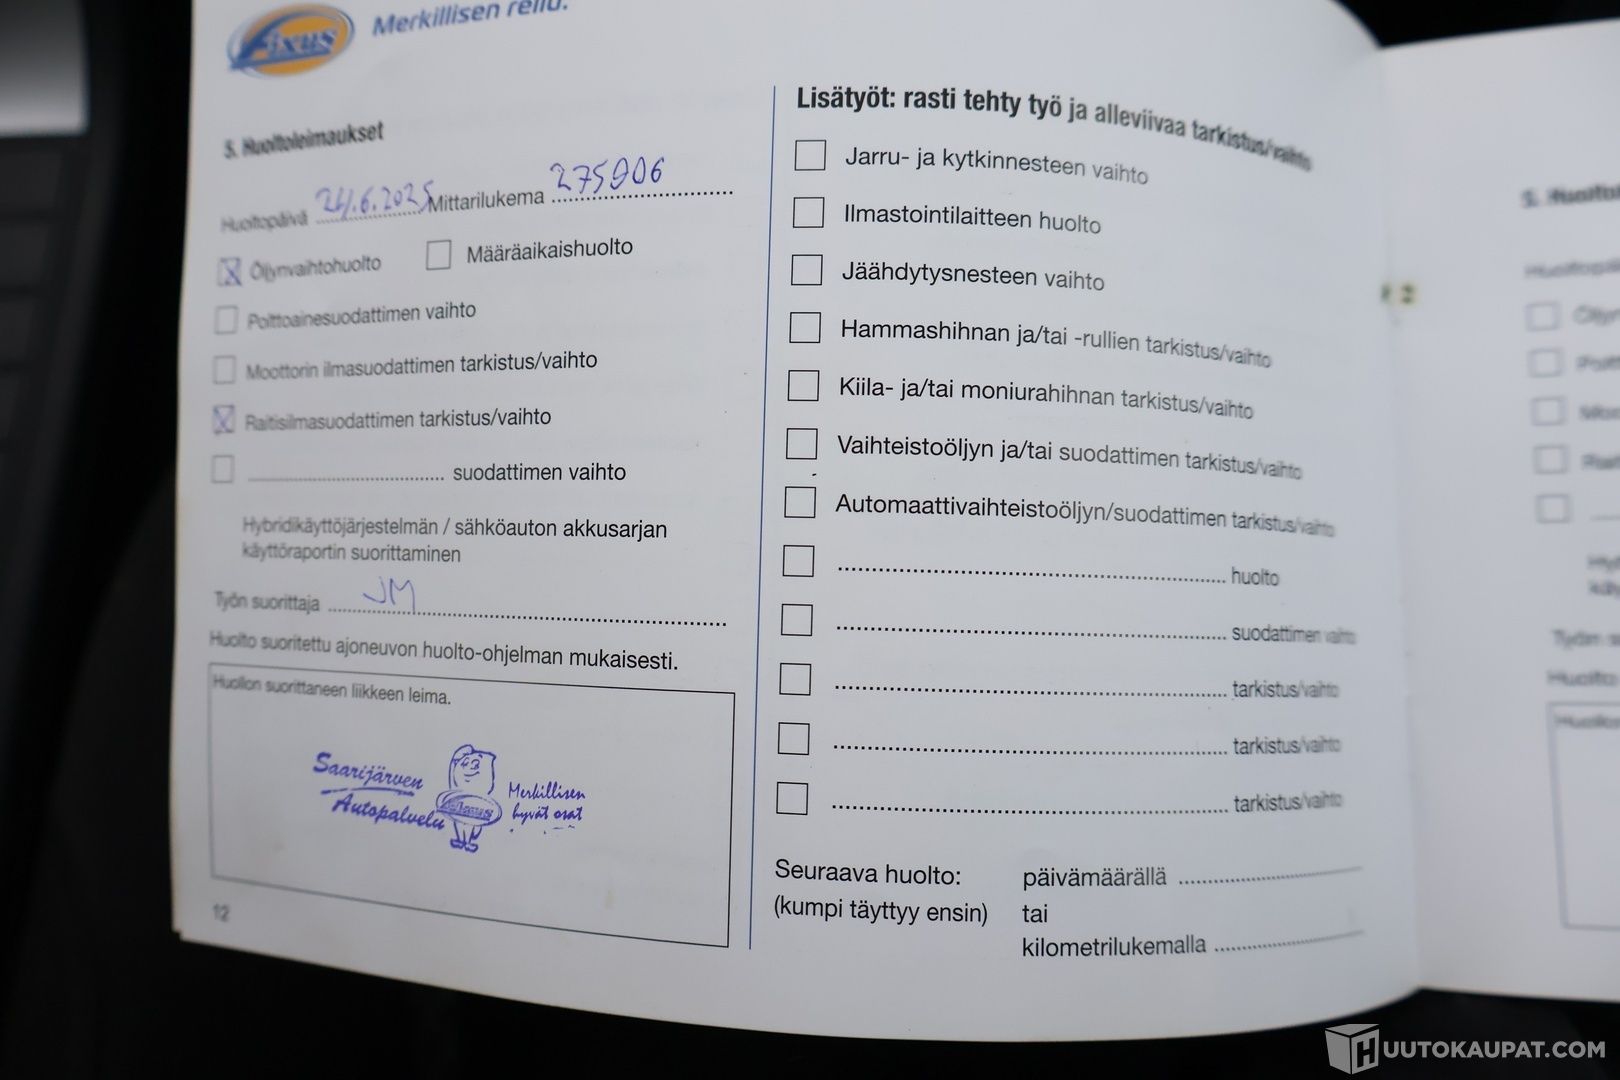 Fixus
Merkillisen reilu.
5. Huoltoleimaukset
Huoltopäivä 24.6.2025 Mittarilukema 275906
Öljynvaihtohuolto
Määräaikaishuolto
Polttoainesuodattimen vaihto
Moottorin ilmasuodattimen tarkistus/vaihto
Raitisilmasuodattimen tarkistus/vaihto
suodattimen vaihto
Hybridikäyttöjärjestelmän / sähköauton akkusarjan
käyttöraportin suorittaminen
Työn suorittaja JM
Huolto suoritettu ajoneuvon huolto-ohjelman mukaisesti.
Huollon suorittaneen liikkeen leima.
Saarijärven
Autopalvelu
Fixus
Merkillisen
hyvät osat
12
Lisätyöt: rasti tehty työ ja alleviivaa tarkistus/vaihto
Jarru- ja kytkinnesteen vaihto
Ilmastointilaitteen huolto
Jäähdytysnesteen vaihto
Hammashihnan ja/tai -rullien tarkistus/vaihto
Kiila- ja/tai moniurahihnan tarkistus/vaihto
Vaihteistoöljyn ja/tai suodattimen tarkistus/vaihto
Automaattivaihteistoöljyn/suodattimen tarkistus/vaihto
huolto
suodattimen vaihto
tarkistus/vaihto
tarkistus/vaihto
tarkistus/vaihto
Seuraava huolto: päivämäärällä
(kumpi täyttyy ensin) tai
kilometrilukemalla
HUUTOKAUPAT.COM